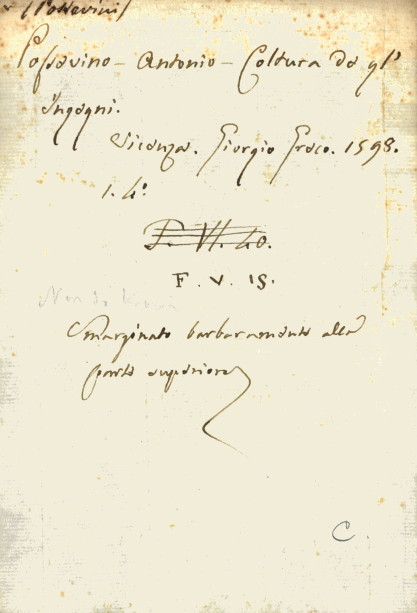 v (Possevini)
Possevino - Antonio - Coltura de gl'
ingegni.
Vicenza. Giorgio Greco. 1598.
1. 4.º
F. VI. 40.
F. V. 18.
Non si trova
Smarginato barbaramente alla
parte superiore
C.